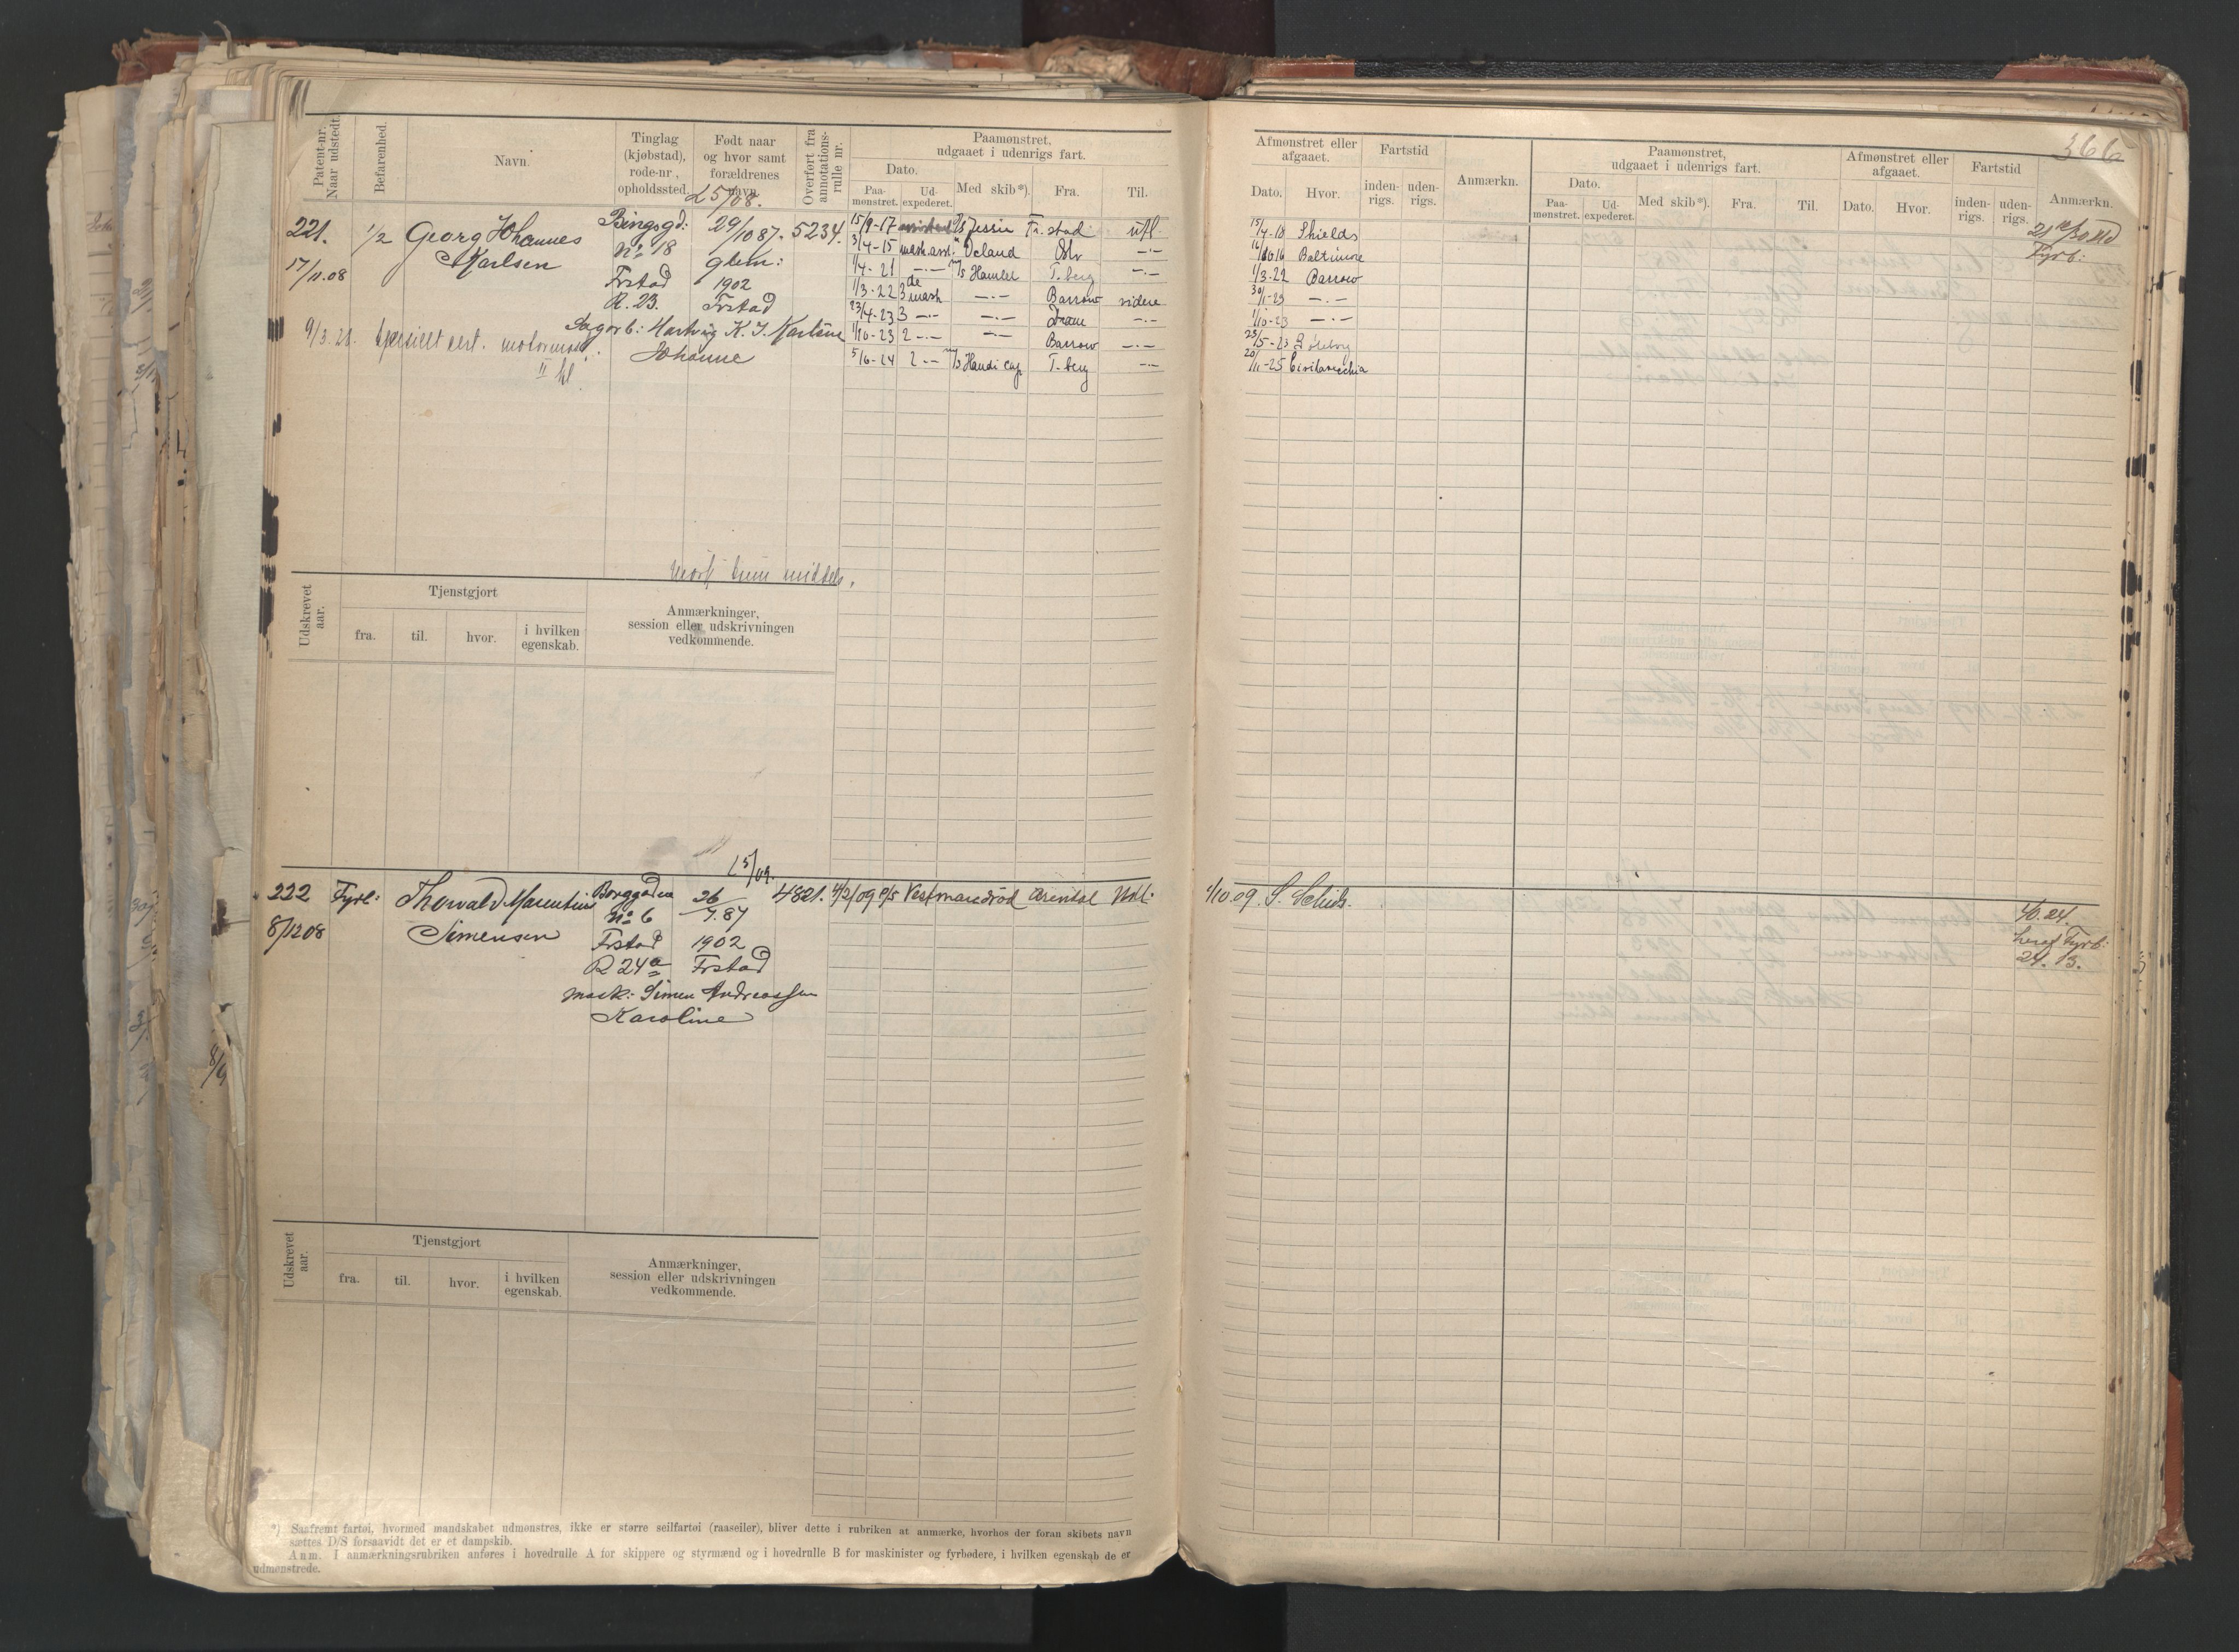 Patent-nr.
Naar udstedt.
Befarenhed.
Navn.
Tinglag
(kjøbstad),
rode-nr.,
opholdssted.
Født naar
og hvor samt
forældrenes
navn.
Overført fra
annotations-
rulle nr.
Paamønstret,
udgaaet i udenrigs fart.
Dato.
Paa-
mønstret.
Ud-
expederet.
Med skib*).
Fra.
Til.
L 5/08.
221. 1/2 Georg Johannes
Karlsen
17/11.08
Bingsgd:
No 18
Frstad
R. 23.
29/10 87.
Glem:
1902
Frstad
5234.
Sagarb: Hartvig K. J. Karlsen
Johanne
9/3.21.
II kl.
15/9-17 Jessie Fr.stad utl
3/4-15 mask.asst. Veland Oslo -·-
1/4-21 -·- m/s Hamlet T.berg -·-
1/3-22 3de mask -·- Barrow videre
23/4-23 3 -·- -·- -·-
1/10-23 2 -·- -·- Barrow -·-
5/6-24 2 -·- m/s Handicap T.berg -·-
Udskrevet
aar.
Tjenstgjort
fra.
til.
hvor.
i hvilken
egenskab.
Anmærkninger,
session eller udskrivningen
vedkommende.
L 5/09.
222 Fyrb: Thorvald Marentius
Simensen
8/12 08
Borggaden
No 6
Frstad
R 24a
26/7.87
1902
Frstad
mask: Simen Andreassen
Karoline
4821. 4/2/09 D/S Vestmanrød Arendal Utl:
Udskrevet
aar.
Tjenstgjort
fra.
til.
hvor.
i hvilken
egenskab.
Anmærkninger,
session eller udskrivningen
vedkommende.
*) Saafremt fartøi, hvormed mandskabet udmønstres, ikke er større seilfartøi (raaseiler), bliver dette i rubriken at anmærke, hvorhos der foran skibets navn
sættes D/S forsaavidt det er et dampskib.
Anm. I anmærkningsrubriken anføres i hovedrulle A for skippere og styrmænd og i hovedrulle B for maskinister og fyrbødere, i hvilken egenskab de er
udmønstrede.
366
Afmønstret eller
afgaaet.
Dato.
Hvor.
Fartstid
inden-
rigs.
uden-
rigs.
Anmærkn.
Paamønstret,
udgaaet i udenrigs fart.
Dato.
Paa-
mønstret.
Ud-
expederet.
Med skib*).
Fra.
Til.
Afmønstret eller
afgaaet.
Dato.
Hvor.
Fartstid
inden-
rigs.
uden-
rigs.
Anmærkn.
Fyrb:
15/4-18 Shields
16/10 16 Baltimore
1/3-22 Barrow
30/1-23 -·-
1/10-23 -·-
25/5-23 Gøteborg
20/11-25 Civitavecchia
1/10.09. S. Schids.
40.24.
heraf Fyrb:
24.13.